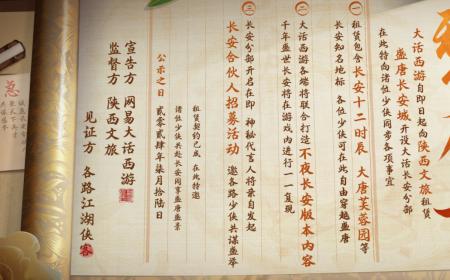 大话西游自即日起向陕西文旅租赁
盛唐长安城 开设大话长安分部
在此特向诸位少侠同步各项事宜
一 租赁包含长安十二时辰 大唐芙蓉园等
长安知名地标 各位少侠可在此自由穿越盛唐
二 大话西游各端将联合打造不夜长安版本内容
千年盛世长安将在游戏内进行一一复现
三 长安分部开启在即 神秘代言人将亲自发起
长安合伙人招募活动 邀各路少侠共谋盛举
租赁契约已成 在此特邀
诸位少侠共赴长安同享盛唐盛景
公示之日 贰零贰肆年柒月拾陆日
宣告方 网易大话西游
监督方 陕西文旅
见证方 各路江湖侠客